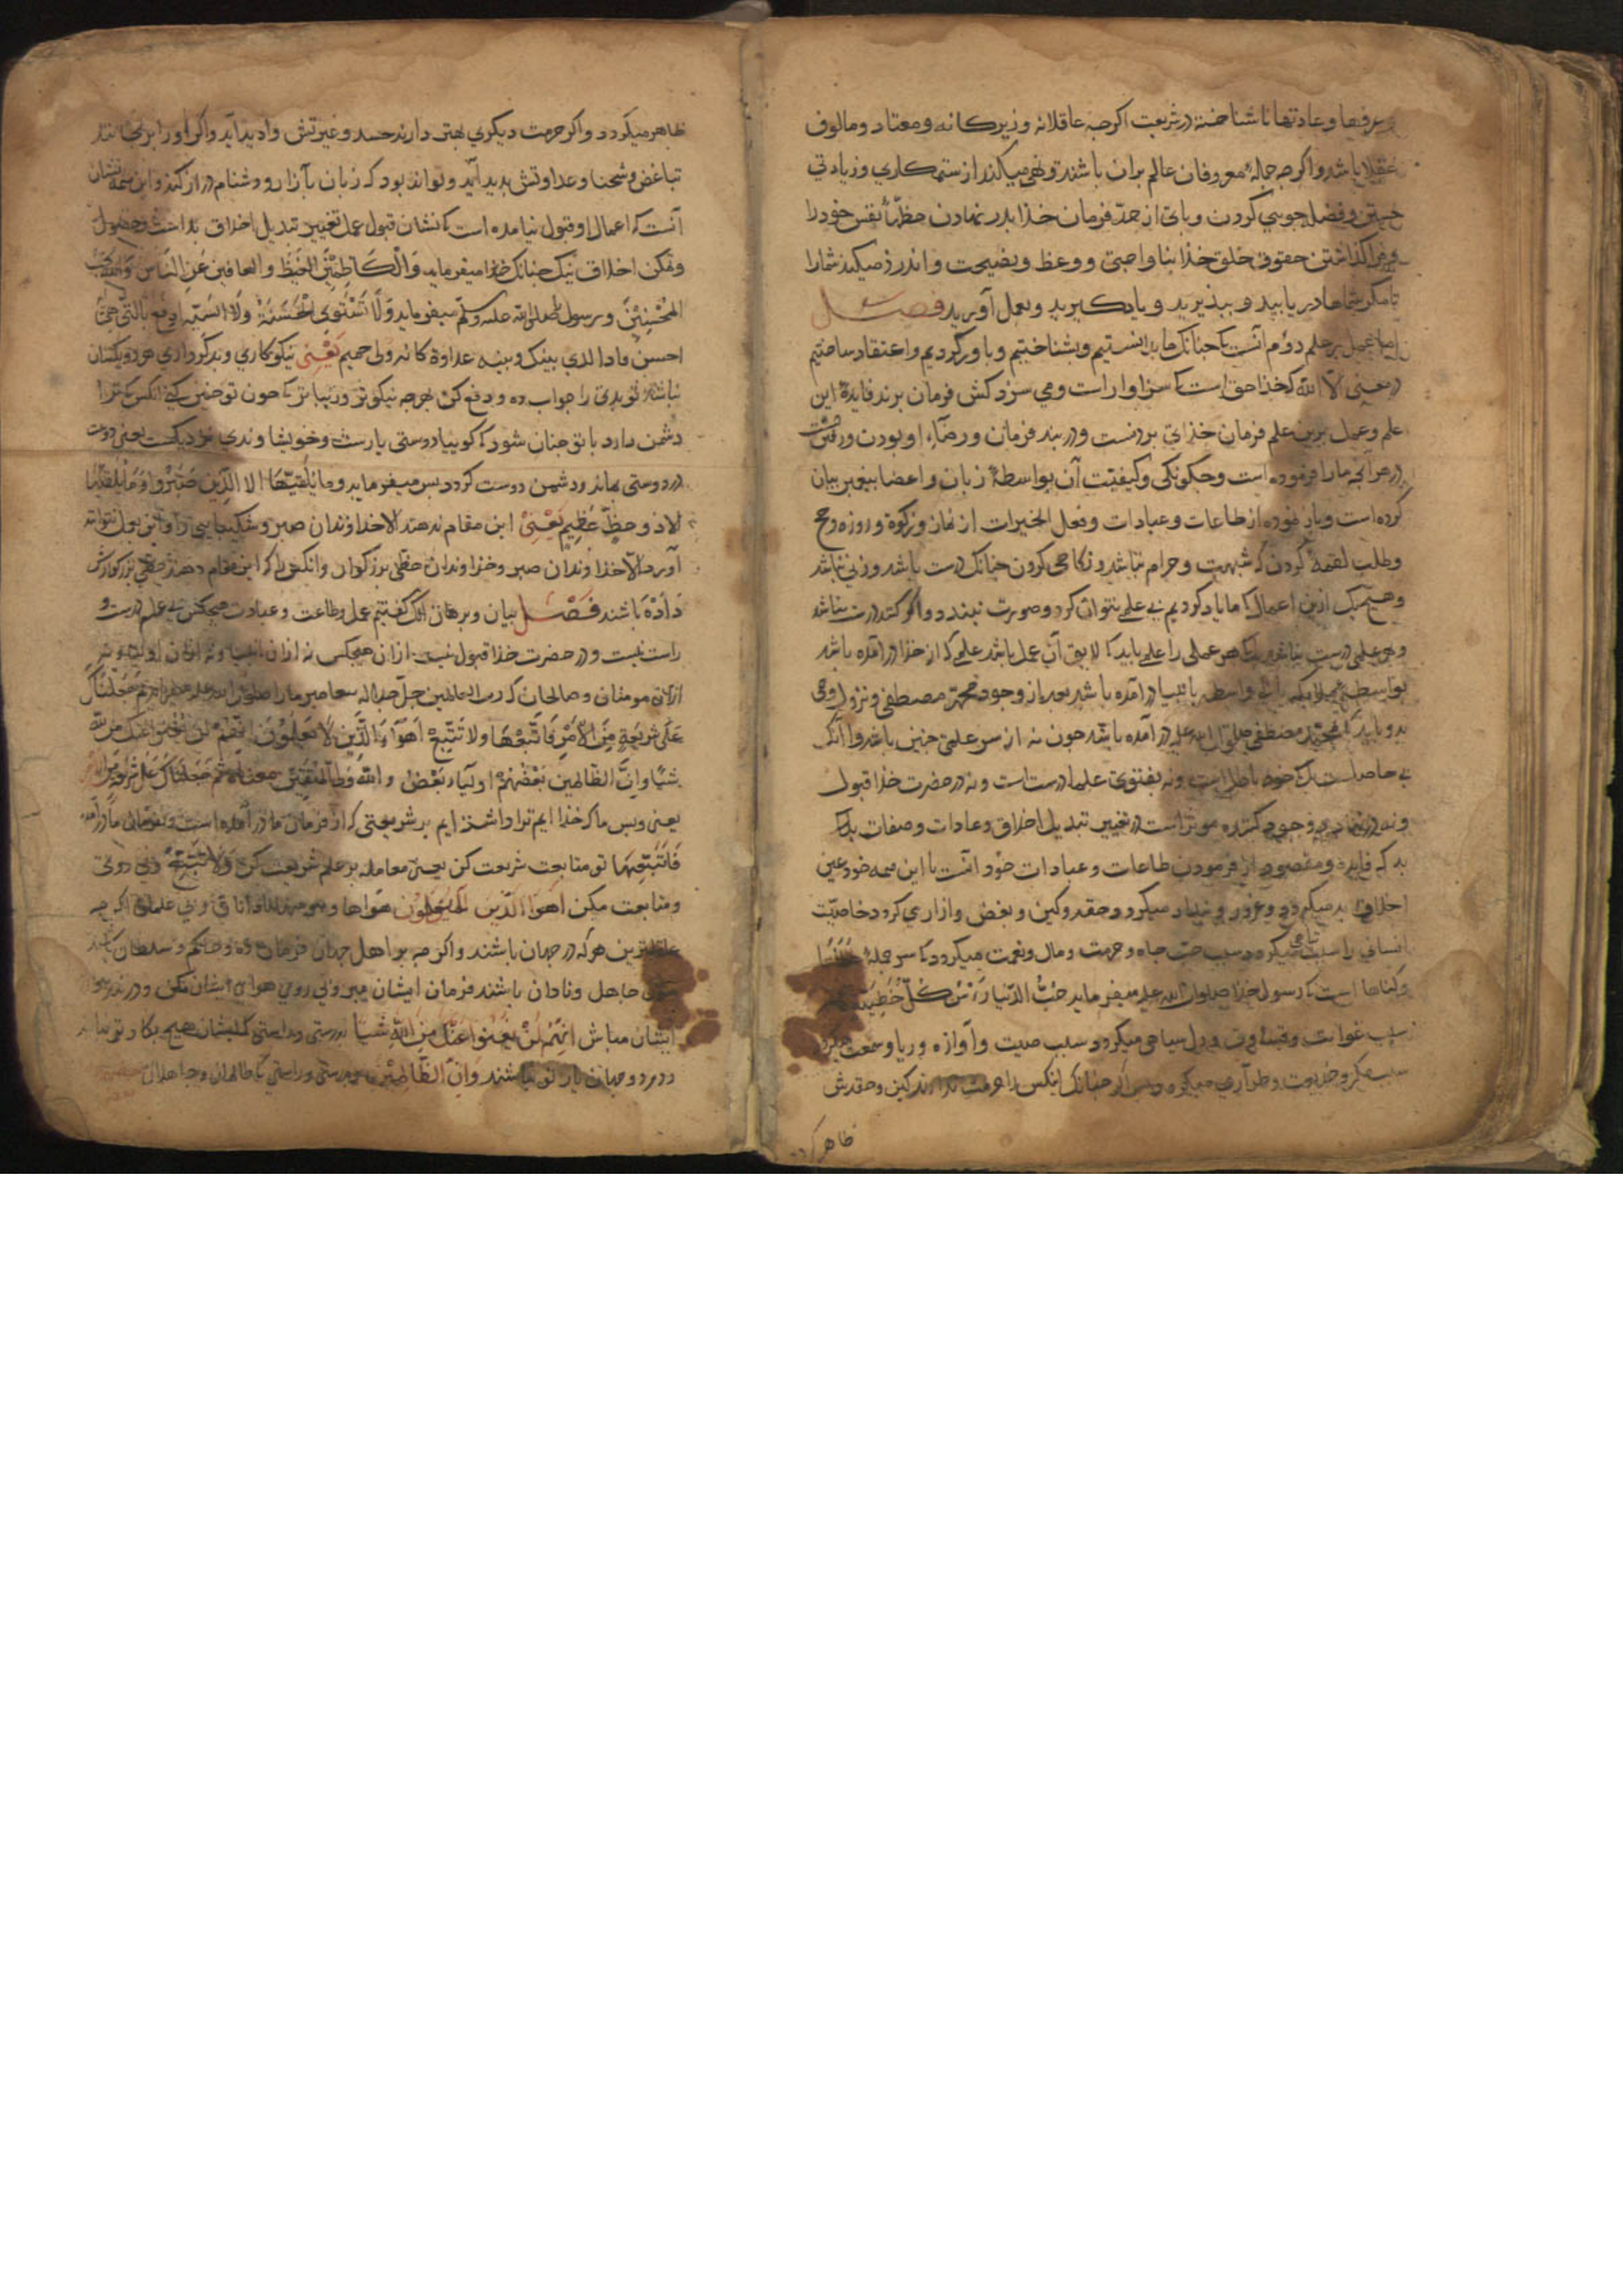 عرفها وعادتها نا شناخته در شریعت اکرچه عاقلانه و زیرکانه و معتاد و مالوف
عقلا باشد واکرچه جملهٔ معروفان عالم بران باشند و نهی میکند از ستمکاری و زیادتی
جستن و فضل جویی کردن و بای از حدّ فرمان خذا بدر نهادن حظّ نفس خود را
و فرو کذاشتن حقوق خلق خذا بناواجبی و وعظ و نصیحت و اندرز میکند شمارا
تا مکر شماها دریابید و ببذیرید و یاد کیرید و بعمل آورید فصل
اما عمل بر علم دوّم آنست که چنانک ما بدانستیم و بشناختیم و باور کردیم و اعتقاد ساختیم
در معنی لا اله الا الله که خذا حق است که سزاوار است و می سزد کش فرمان برند فایدهٔ این
علم و عمل برین علم فرمان خذای بردنست و در بند فرمان و رضاء او بودن و رفتن
در هر آنچه مارا فرموده است و چکونکی و کیفیت آن بواسطهٔ زبان و اعضا بیغمبر بیان
کرده است و باز نموده از طاعات و عبادات و فعل الخیرات از نماز و زکوة و روزه و حج
و طلب لقمهٔ کردن که شبهت و حرام نباشد و نکاحی کردن چنانک درست باشد و زنی نباشد
و هیچ یک ازین اعمال که ما یاد کردیم بی علم نتوان کرد و صورت نبندد و اکر کند درست نباشد
و هر علمی درست نباشد بلک هر عملی را علمی باید که لایق آن عمل باشد علمی که از خذا در آمده باشد
بواسطهٔ ملایکه یا بی واسطه بانبیا در آمده باشد بعد از وجود محمّد مصطفی و نزول وحی
بدو باید که محمّد مصطفی صلوات الله علیه در آمده باشد چون نه از سر علمی چنین باشد و آنک
بی حاصلست بلک خود باطل است و نه بفتوی علما درست است و نه در حضرت خذا قبول
و نه در نهاد و وجود کننده موثر است در تغییر تبدیل اخلاق و عادات و صفات بد بلک
بد که فایده و مقصود از فرمودن طاعات و عبادات خود آنست با این همه خود عین
اخلاق بد میکردد و غرور و بندار میکردد و حقد و کین و بغض و آزاری کردد خاصیّت
انسانی را سبب تباهی میکردد و سبب حبّ جاه و حرمت و مال و نعمت میکردد که سر جملهٔ
و کناهها است که رسول خذا صلوات الله علیه میفرماید حُبُّ الدّنیا رَأسُ کُلّ خَطِیئَة
سبب غوایت و قساوت و دل سیاهی میکردد و سبب صیت و آوازه و ریا و سمعت میکردد
سبب مکر و خدیعت و طرآری میکردد و بس اکر چنانک اینکس را حرمت ندارند کین و حقدش
ظاهر کردد
ظاهر میکردد و اکر حرمت دیکری بهتر دارند حسد و غیرتش وا دید آید و اکر او را برنجانند
تباغض و شحنا و عداوتش بدید آید و تواند بود که زبان بآزار و دشنام دراز کند و این همه نشان
آنست که اعمال او قبول نیامده است که نشان قبول عمل تغییر تبدیل اخلاق بد است و حصول
و تمکن اخلاق نیک چنانک خذا میفرماید وَالْکَاظِمِینَ الْغَیْظَ وَالعافین عَنِ النّاسِ وَاللهُ یُحِبُّ
المُحْسِنِینَ و رسول را صلی الله علیه وسلّم میفرماید وَلَا تَسْتَوِی الْحَسَنَةُ وَلَا السّیّئة ادفع بالّتی هی
احسن فاذا الذی بینک وبینه عداوة کانه ولی حمیم یَعْنِی نیکوکاری و بدکرداری هر دو یکسان
نباشد تو بدی را جواب ده و دفع کن بهرچه نیکوتر و زیباتر که چون تو چنین کنی آنکس که ترا
دشمن دارد با تو چنان شود که کوییا دوستی یارست و خویشاوندی نزدیکست یعنی دوست
در دوستی بماند و دشمن دوست کردد بس میفرماید وما یُلَقَّیهَا الا الّذین صَبَرُوا وَمَا یُلَقَّیهَا
الا ذو حظٍّ عظیم یَعْنِی این مقام ندهند الا خذاوندان صبر و شکیبایی را و این بول نتواند
آورد الّا خذاوندان صبر و خذاوندان حظّی بزرکوار و آنکس را که این مقام دهند حظّی بزرکوارش
دَادَه باشند فَصْل بیان و برهان آنک کفتیم عمل و طاعت و عبادت هیچکس بی علم درست و
راست نیست و در حضرت خذا قبول نیست از آن هیچکس نه از آن انبیا و نه از آن اولیا و نه
از آن مومنان و صالحان که رب العالمین جلّ جلاله بیغامبر مارا صلوات الله علیه میفرماید ثمّ جَعَلْنَاکَ
عَلَی شَرِیعَةٍ مِنَ الاَمْرِ فَاتَّبِعْهَا وَلا تَتَّبِعْ اَهْوَآءَ الَّذِینَ لَا یَعْلَمُونَ اِنَّهُمْ لَنْ یُغْنُوا عَنْکَ مِنَ اللهِ
شیئًا وَاِنَّ الظالمین بَعْضُهُمْ اولیَاء بَعْض والله وَلیّ المُتّقِینَ معناه ثُمَّ جَعَلناکَ عَلی شَرِیعَةٍ مِنَ الامر
یعنی و بس ما که خذا ایم ترا وا داشته ایم بر شریعتی که از فرمان ما در آمده است و بفرمان ما در آمد
فَاتَّبِعْهَا تو متابعت شریعت کن یعنی معامله بر علم شریعت کن وَلا تَتَّبِعْ و بی روی
و متابعت مکن اَهْوَآءَ الّذین لا یَعْلَمُون هواها و
عاقلترین هر که در جهان باشند و اکرچه بر اهل جهان فرمان ده و حاکم و سلطان باشند
چون جاهل و نادان باشند فرمان ایشان مبر و بی روی هوای ایشان مکن و در بند
ایشان مباش اِنَّهُمْ لَنْ یُغْنُوا عَنْکَ مِنَ اللهِ شیئًا بدرستی و راستی که ایشان هیچ بکار تو نیایند
و در هر دو جهان یار تو نباشند وَاِنَّ الظَّالِمِینَ بدرستی و راستی که ظالمان و جاهلان